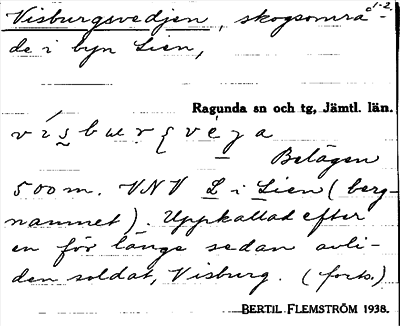 Visburgsvedjen, skogsområ- 1-2.
de i byn Lien,
Ragunda sn och tg, Jämtl. län.
Belägen
500 m. VNV L i Lien (berg-
namnet). Uppkallat efter
en för länge sedan avli-
den soldat, Visburg. (forts.)
BERTIL FLEMSTRÖM 1938.